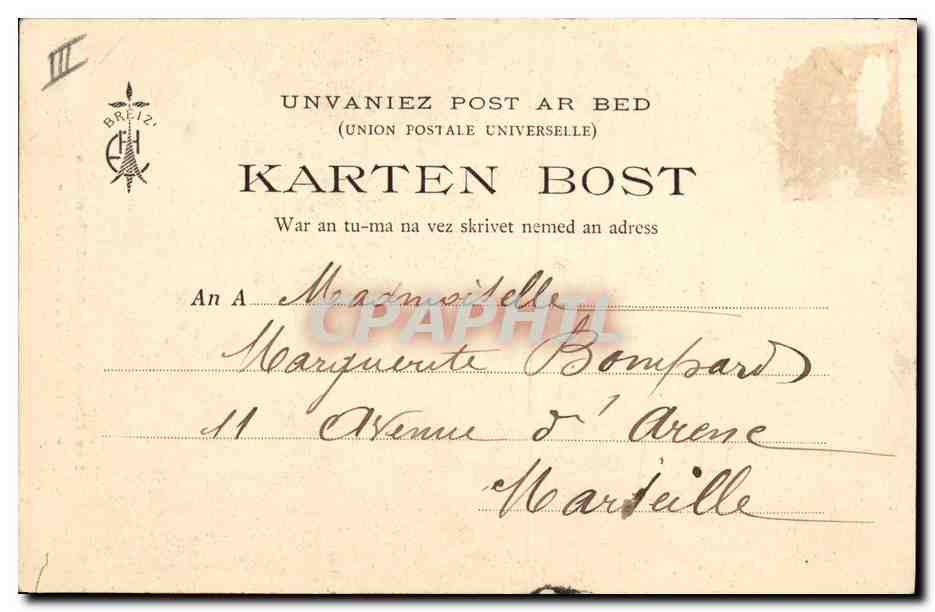 III
BREIZ'
UNVANIEZ POST AR BED
(UNION POSTALE UNIVERSELLE)
KARTEN BOST
War an tu-ma na vez skrivet nemed an adress
An A Madmoiselle
CPAPHIL
Marguerite Bompard
11 Avenue d'Arenc
Marseille